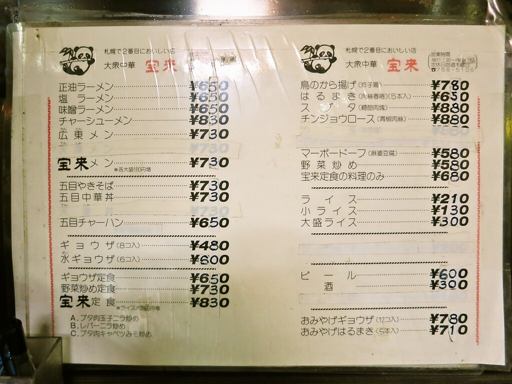 札幌で2番目においしい店
大衆中華 宝来
正油ラーメン ¥650
塩ラーメン ¥650
味噌ラーメン ¥650
チャーシューメン ¥830
広東メン ¥730
宝来メン ¥730
五目やきそば ¥730
五目中華丼 ¥730
五目チャーハン ¥650
ギョウザ(8コ入) ¥480
水ギョウザ(6コ入) ¥600
ギョウザ定食 ¥650
野菜炒め定食 ¥730
宝来定食 ¥830
A.ブタ肉玉子ニラ炒め
B.レバーニラ炒め
C.ブタ肉キャベツみそ炒め
札幌で2番目においしい店
大衆中華 宝来
営業時間
鳥のから揚げ(炸子鶏) ¥780
はるまき(5本入) ¥880
スブタ ¥880
チンジョウロース(青椒肉絲) ¥880
マーボードーフ(麻婆豆腐) ¥580
野菜炒め ¥580
宝来定食の料理のみ ¥680
ライス ¥210
小ライス ¥130
大盛ライス ¥300
ビール ¥600
酒 ¥300
おみやげギョウザ(12コ入) ¥780
おみやげはるまき(5本入) ¥710